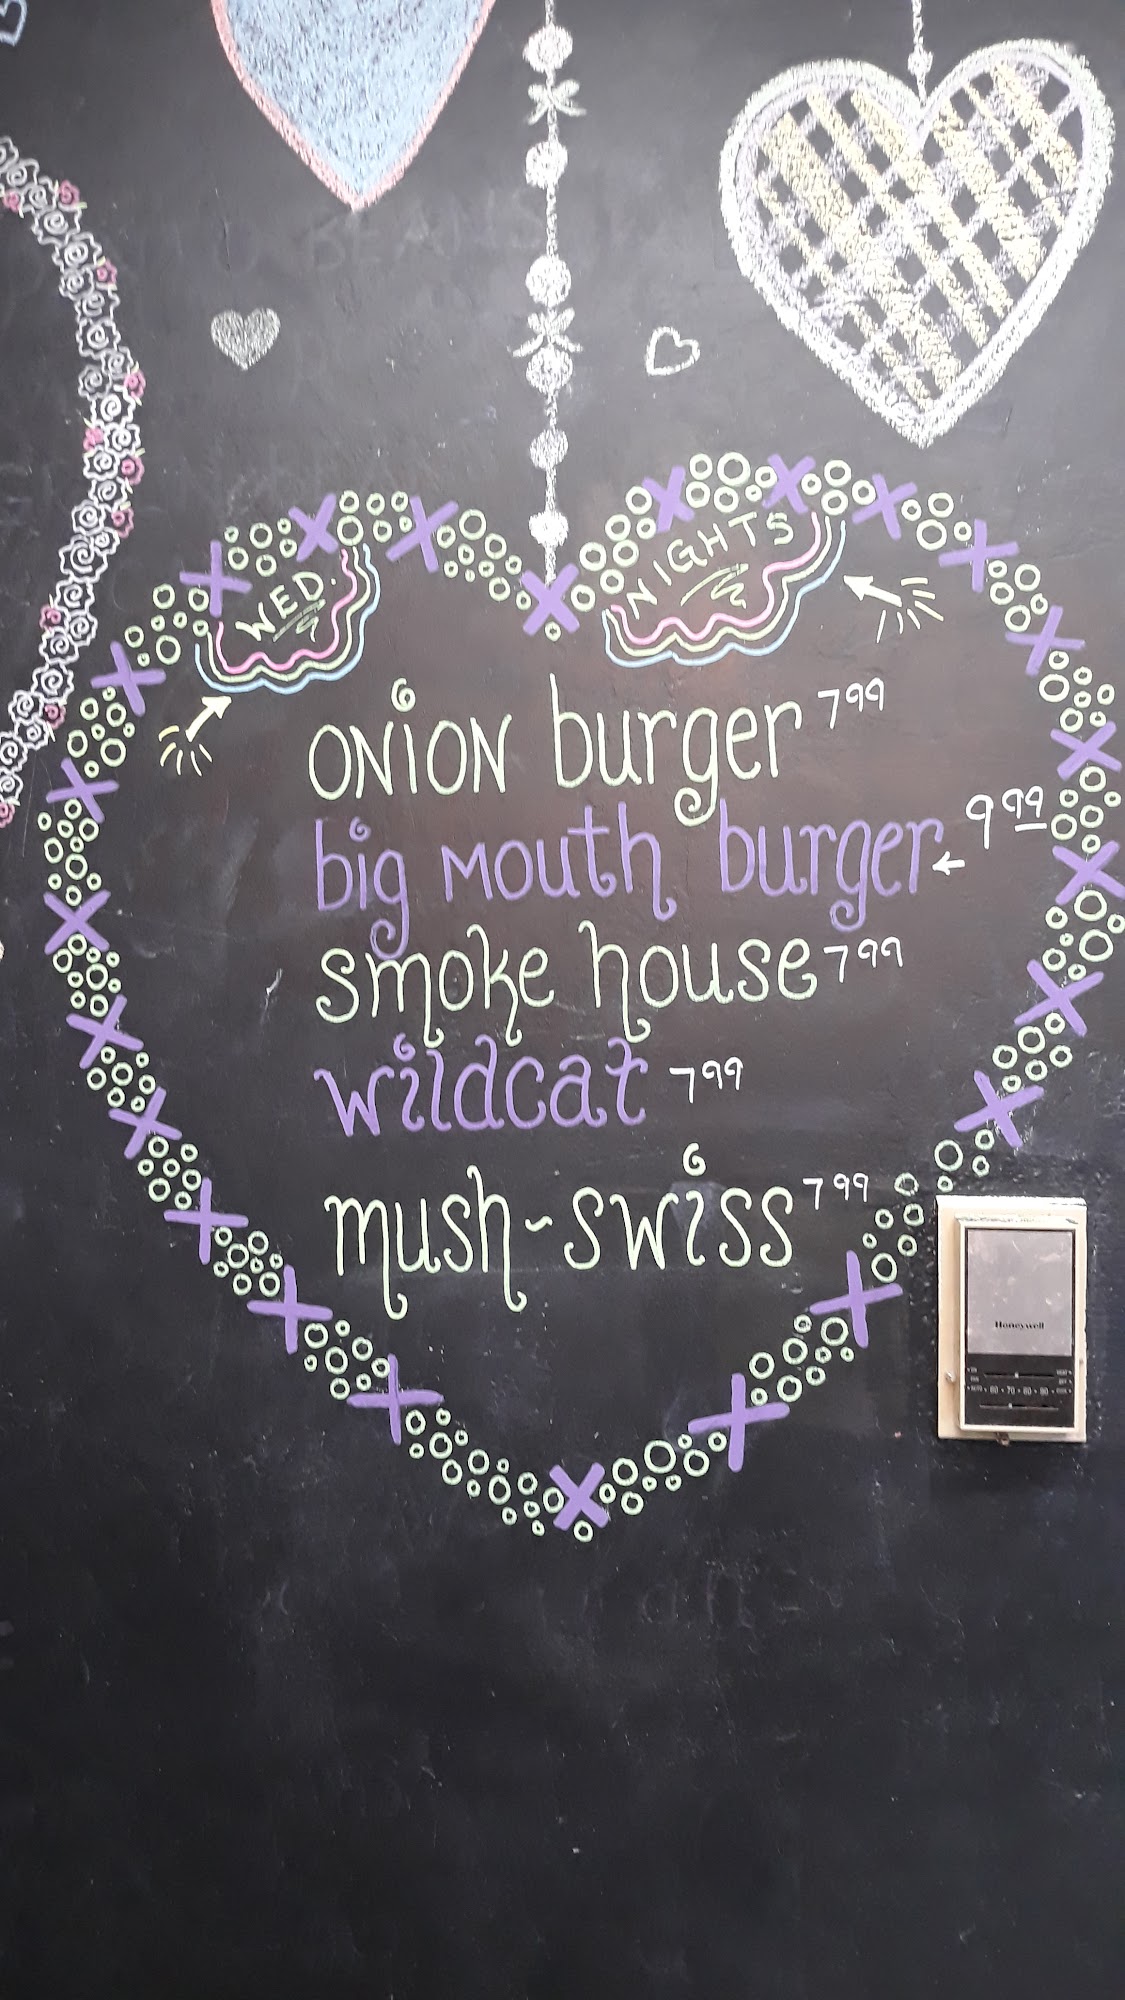 WED. NIGHTS
ONION burger 7 99
big mouth burger 9 99
smoke house 7 99
wildcat 7 99
mush-swiss 7 99
Honeywell